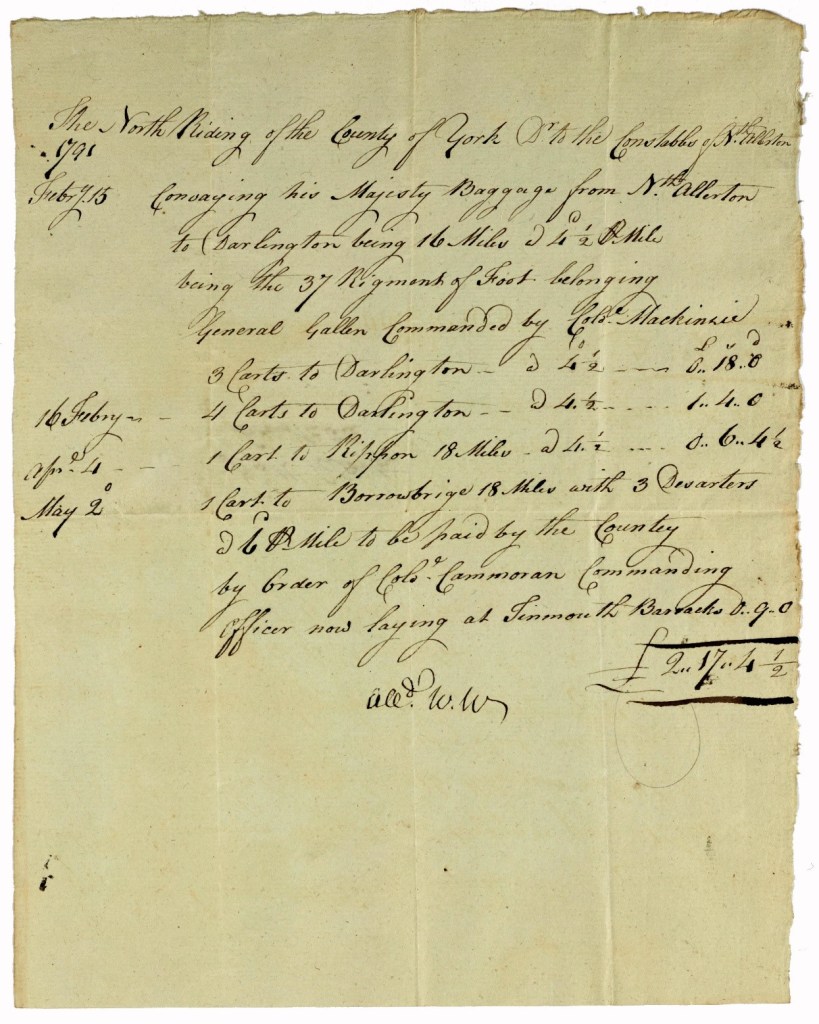 The North Riding of the County of York Dr to the Constabbs of Nth Allerton
1791
Febry. 15 Convaying his Majesty Baggage from Nth. Allerton
to Darlington being 16 Miles a 4d ½ Pr Mile
being the 37 Rigment of Foot belonging
General Gallen Commanded by Cold. Mackinzie
£ s d
3 Carts to Darlington - a 4d ½ --- 0..18..0
16 Febry - - 4 Carts to Darlington -- a 4.½ ---- 1..4..0
Apr. 4 -- 1 Cart. to Rippon 18 Miles - a 4.½ ---- 0..6..4½
May 2d 1 Cart. to Borrowbrige 18 Miles with 3 Desarters
a 6d Pr Mile to be paid by the Countey
by Order of Cold. Cammoran Commanding
Officer now laying at Tinmouth Barracks 0..9..0
£ 2..17..4 ½
Alld. W.W